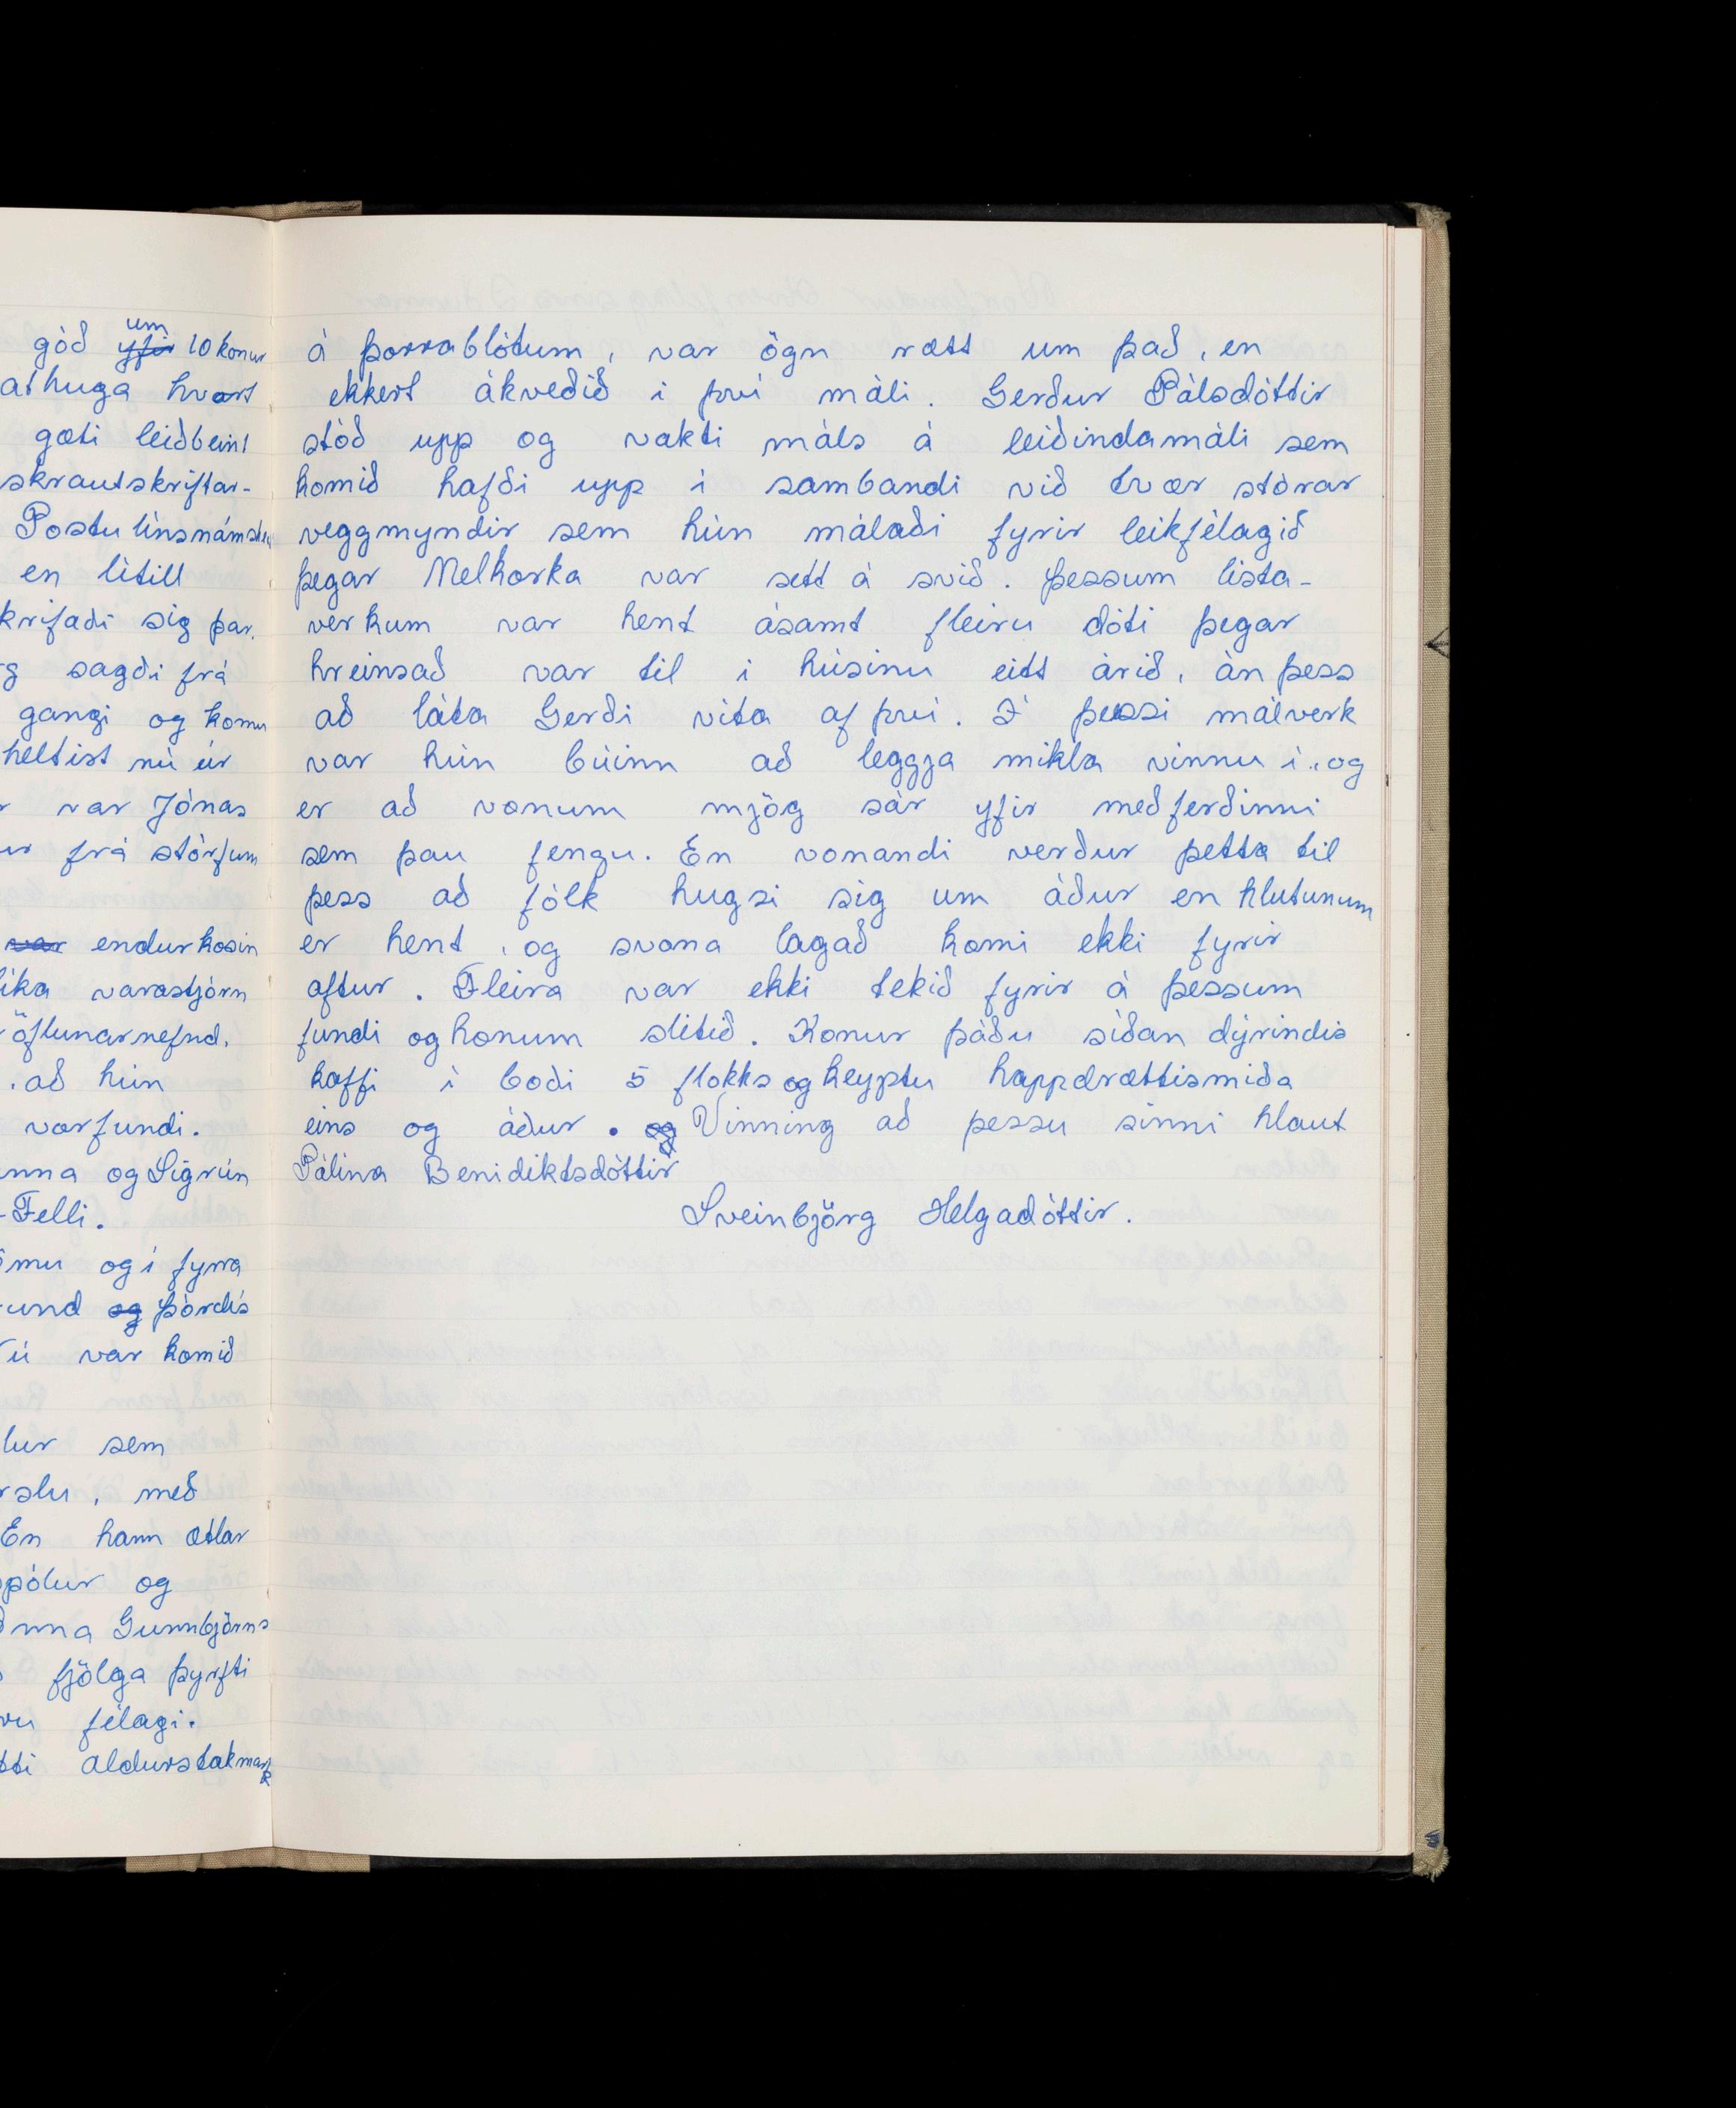 góð um yfir 10 konur
athuga hvort
gæti leiðbeint
skrautskriftar-
Postulínsnámsk
en lítill
krifaði sig þar.
sagði frá
gangi og komu
heltist nú úr
var Jónas
frá störfum
var endurkosin
líka varastjórn
öflunarnefnd.
að hún
vorfundi.
nna og Sigrún
Felli.
mu og í fyrra
und og Þórdís
ú var komið
lur sem
rslu, með
En hann ætlar
pólur og
nna Gunnbjörns
fjölga þyrfti
félagi.
tti aldurstakmark
á þorrablótum, var ögn rætt um það, en
ekkert ákveðið í því máli. Gerður Pálsdóttir
stóð upp og vakti máls á leiðindamáli sem
komið hafði upp í sambandi við tvær stórar
veggmyndir sem hún málaði fyrir leikfélagið
þegar Melkorka var sett á svið. Þessum lista-
verkum var hent ásamt fleiru dóti þegar
hreinsað var til í húsinu eitt árið, án þess
að láta Gerði vita af því. Í þessi málverk
var hún búinn að leggja mikla vinnu í, og
er að vonum mjög sár yfir meðferðinni
sem þau fengu. En vonandi verður þetta til
þess að fólk hugsi sig um áður en hlutunum
er hent, og svona lagað komi ekki fyrir
aftur. Fleira var ekki tekið fyrir á þessum
fundi og honum slitið. Konur þáðu síðan dýrindis
kaffi í boði 5 flokks og keyptu happdrættismiða
eins og áður. og Vinning að þessu sinni hlaut
Pálína Benidiktsdóttir
Sveinbjörg Helgadóttir.